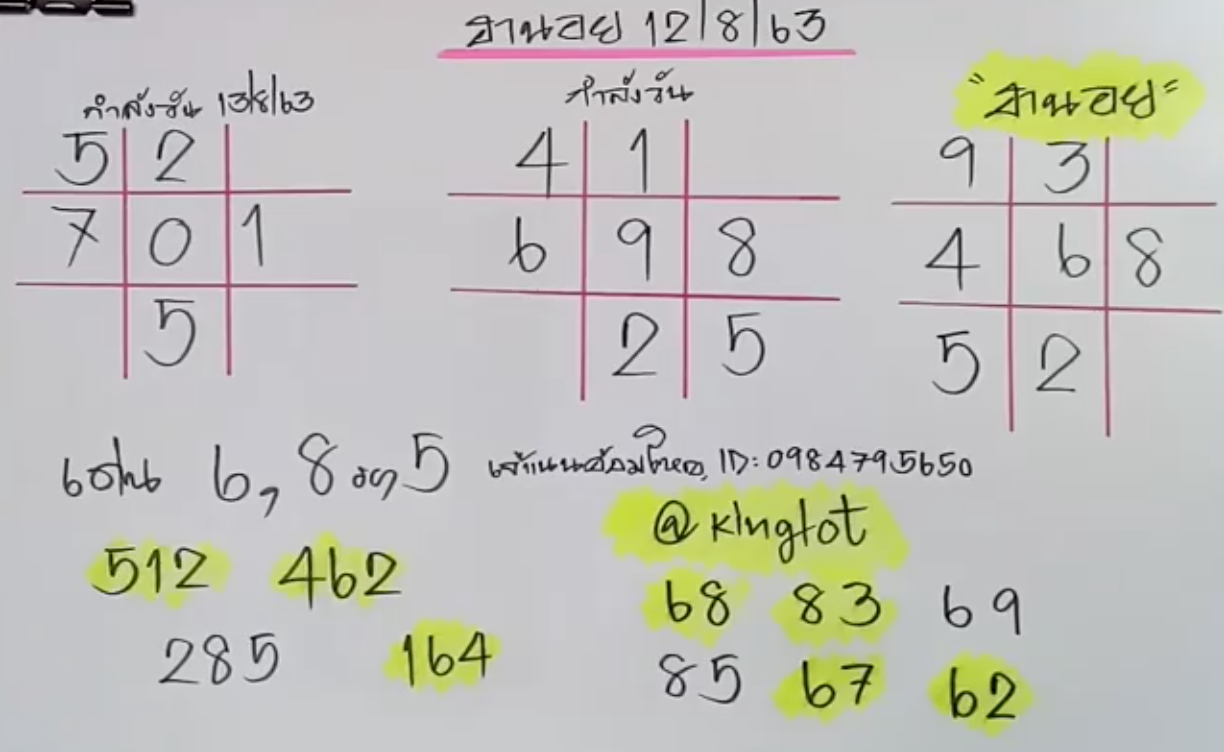 ฮานอย 12/8/63
กำลังวัน 13/8/63
5 2
7 0 1
5
กำลังวัน
4 1
6 9 8
2 5
"ฮานอย"
9 3
4 6 8
5 2
เด่น 6, 8 รอง 5
512 462
285 164
ID: 0984795650
@kinglot
68 83 69
85 67 62